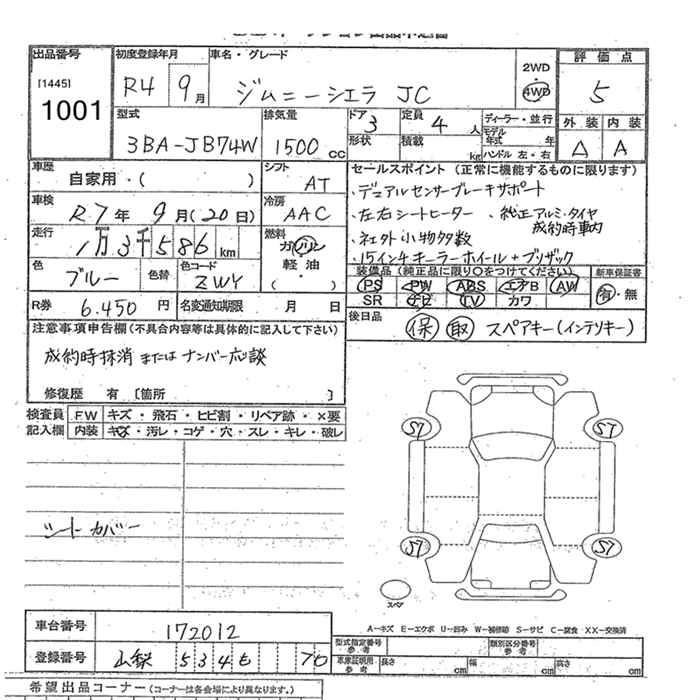 出品番号
[1445]
1001
初度登録年月
R4 9月
車名・グレード
ジムニーシエラ JC
2WD
4WD
評価点
5
外装 内装
△ A
型式
3BA-JB74W
排気量
1500 cc
ドア 3
形状
定員 4 人
積載 kg
ディーラー・並行
モデル
年式 年
ハンドル 左・右
車歴
自家用・( )
シフト
AT
車検
R7年 9月(20日)
冷房
AAC
走行
1万3千586km
燃料
ガソリン
軽油・
( )
色
ブルー
色替
色コード
ZWY
R券 6.450円
名変通知期限 月 日
セールスポイント (正常に機能するものに限ります)
・デュアルセンサーブレーキサポート
・左右シートヒーター ・純正アルミ・タイヤ
成約時車内
・社外小物多数
・15インチキーラーホイール+ブリザック
装備品 (純正品に限り○をつけてください)
PS PW ABS エアB AW
SR ナビ TV カワ
新車保証書
有・無
後日品
保 取 スペアキー(インテリキー)
注意事項申告欄 (不具合内容等は具体的に記入して下さい)
成約時抹消またはナンバー応談
修復歴 有 [箇所 ]
検査員
記入欄
FW キズ・飛石・ヒビ割・リペア跡・×要
内装 キズ・汚レ・コゲ・穴・スレ・キレ・破レ
シートカバー
S7 S7
S7 S7
スペア
A→キズ E→エクボ U→凹み W→補修跡 S→サビ C→腐食 XX→交換済
車台番号 172012
登録番号 山梨 534 も 70
型式指定番号
参考
類別区分番号
参考
車庫証明用
参考
長さ cm 幅 cm 高さ cm
希望出品コーナー (コーナー分は各会場により異なります。)